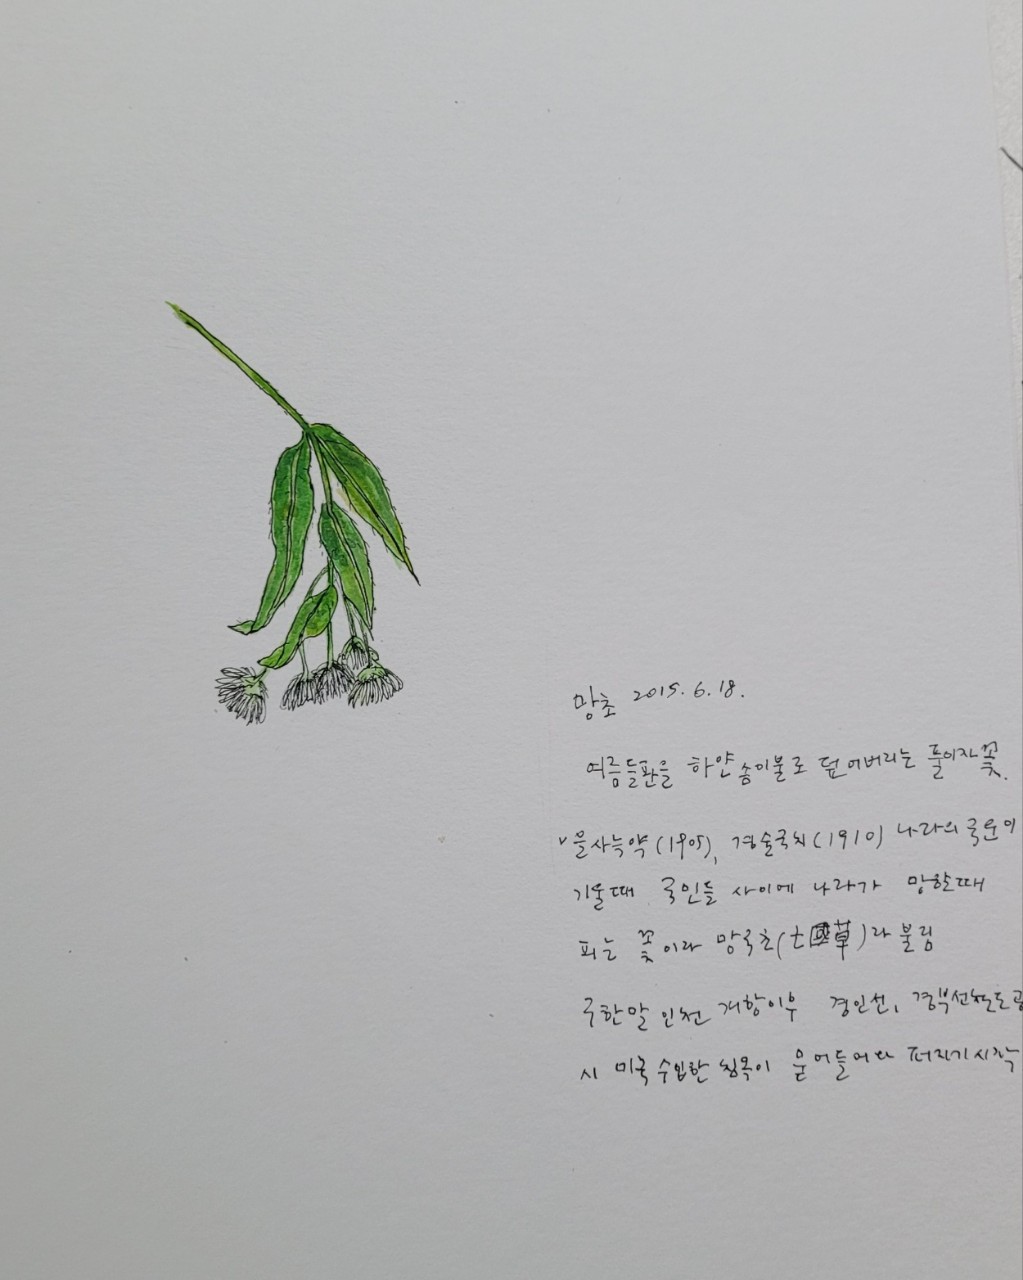 망초 2015. 6. 18.
여름들판을 하얀 송이불로 덮어버리는 풀이자 꽃.
v 을사늑약(1905), 경술국치(1910) 나라의 국운이
기울때 국민들 사이에 나라가 망할때
피는 꽃이라 망국초(亡國草)라 불림
구한말 인천 개항이후 경인선, 경부선철도공
시 미국 수입한 침목이 묻어들어와 퍼지기시작